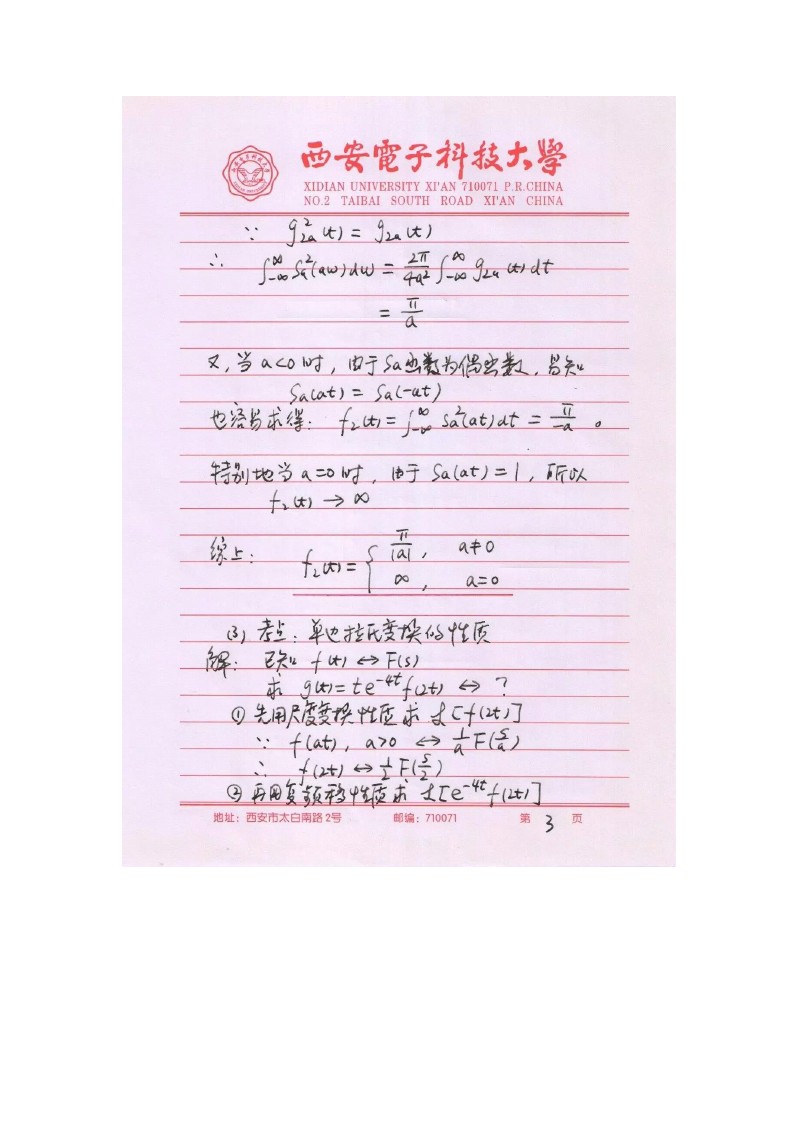 西安電子科技大學
XIDIAN UNIVERSITY XI'AN 710071 P.R.CHINA
NO.2 TAIBAI SOUTH ROAD XI'AN CHINA
∵ g²₂ₐ(t) = g₂ₐ(t)
∴ ∫_{-∞}^{∞} Sa²(aω)dω = 2π/4a² ∫_{-∞}^{∞} g₂ₐ(t)dt
= π/a
又,当a<0时,由于Sa函数为偶函数,易知
Sa(at) = Sa(-at)
也容易求得: f₂(t) = ∫_{-∞}^{∞} Sa²(at)dt = π/-a 。
特别地当a=0时,由于Sa(at)=1,所以
f₂(t) → ∞
综上: f₂(t) = { π/|a| , a≠0
∞ , a=0
(3) 考点:单边拉氏变换的性质
解: 已知 f(t) ↔ F(s)
求 g(t)=te^{-4t}f(2t) ↔ ?
① 先用尺度变换性质求 ℒ[f(2t)]
∵ f(at), a>0 ↔ 1/a F(s/a)
∴ f(2t) ↔ 1/2 F(s/2)
② 再用复频移性质求 ℒ[e^{-4t}f(2t)]
地址:西安市太白南路2号 邮编:710071 第 3 页